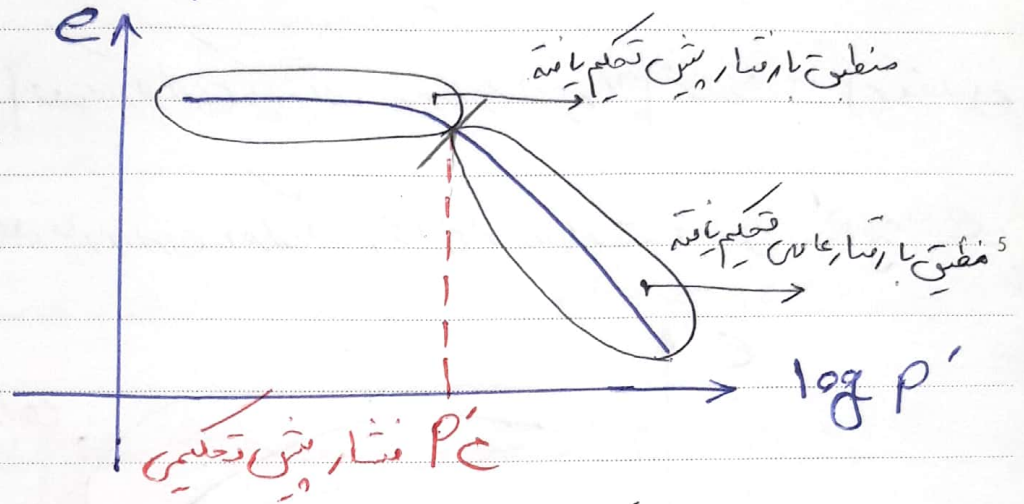 e
منطبق با رفتار پیش تحکیم یافته
منطبق با رفتار عادی تحکیم یافته
5
log p′
P′c فشار پیش تحکیمی